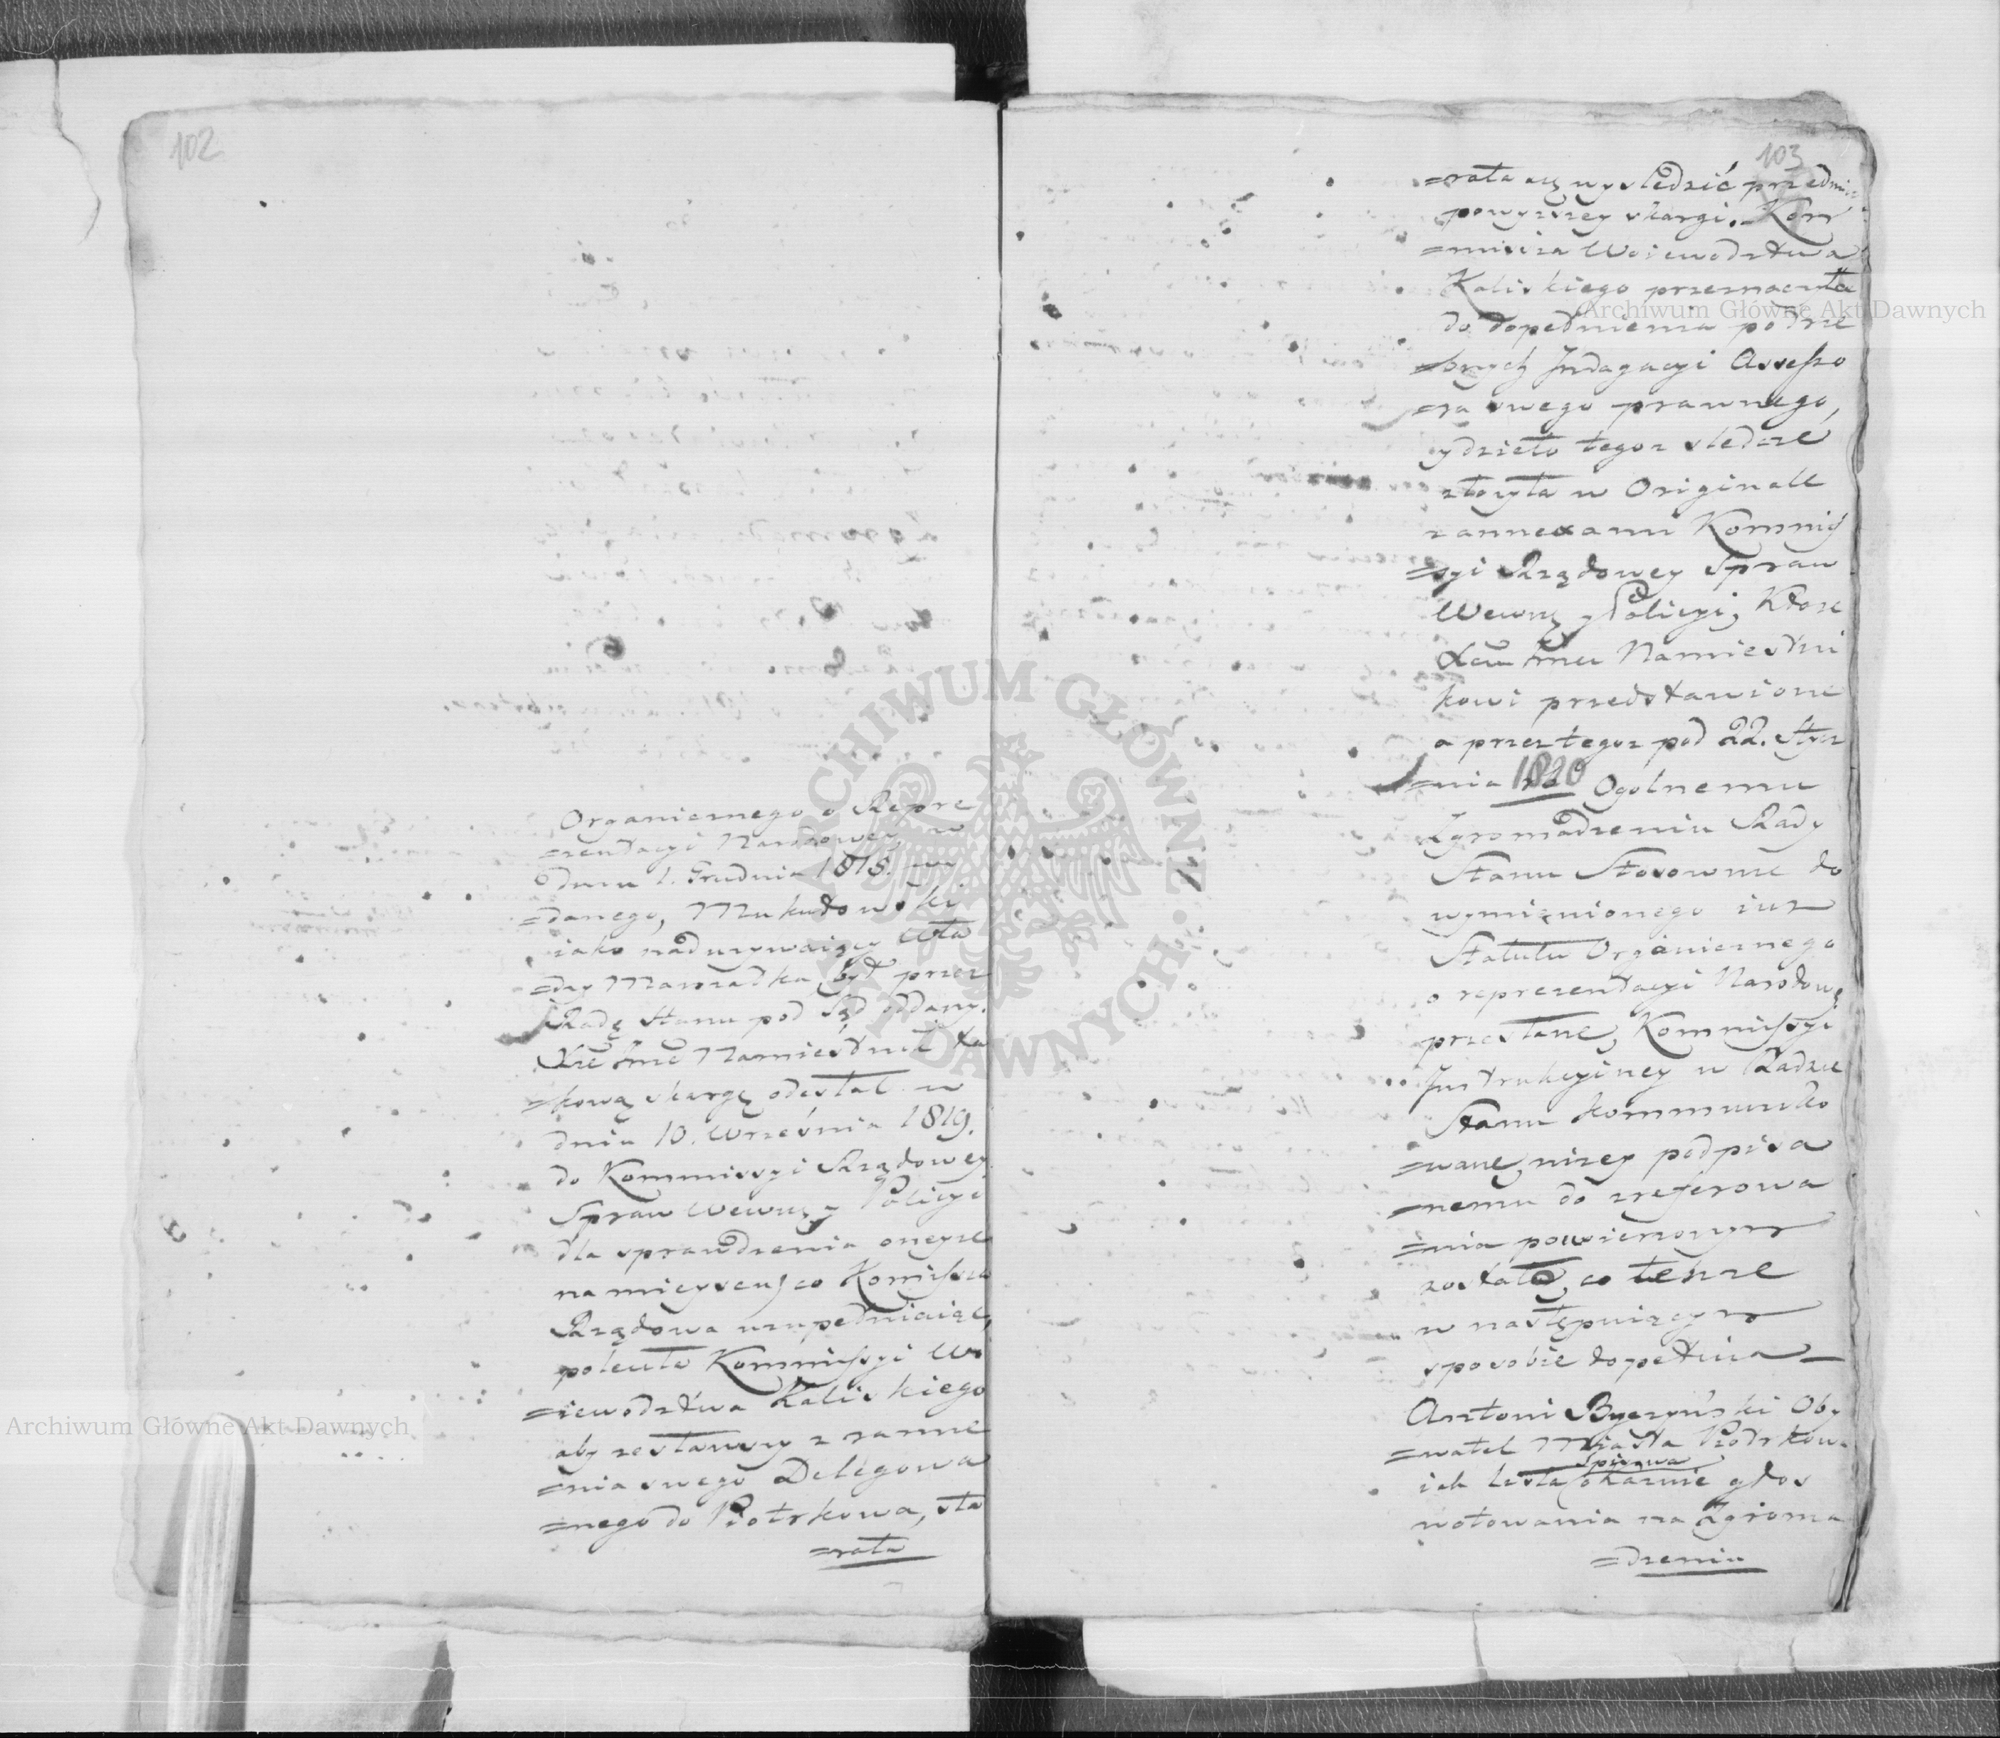 102
Organicznego o Repre
=zentacyi Narodowey w
dniu 1. Grudnia 1815. wy
=danego, Mukułowski
iako nadużywaiący Wła
=dzy Marszałka, był przez
Radę Stanu pod Sąd oddany.
Xże Jmć Namiestnik ta
=kową skargę odesłał w
dniu 10. Września 1819.
do Kommissyi Rządowey
Spraw Wewnę y Policyi
dla sprawdzenia oneyże
na mieyscu, co Komissya
Rządowa uzupełniaiąc,
poleciła Kommissyi Wo
=iewodztwa Kaliskiego
aby zesławszy z ramie
=nia swego Delegowa
=nego do Piotrkowa, sta
=rała
103
=rała się wyśledzić przedmiot
powyższey skargi. Kom
=missia Woiewodztwa
Kaliskiego przeznaczyła
do dopełnienia potrze
=bnych Indagacyi Assesso
=ra swego prawnego,
y dzieło tegoż śledze
złożyła w Originale
z annexami Kommis
=syi Rządowey Spraw
Wewnę y Policyi, Które
Xciu Jmci Namiestni
kowi przedstawione
a przez tegoż pod 22. Stycz
=nia 1820 Ogólnemu
Zgromadzeniu Rady
Stanu Stosownie do
wymienionego iuż
Statutu Organicznego
o reprezentacyi Narodowey
przesłane, Kommissyi
Instrukcyiney w Radzie
Stanu kommuniko
=wane, niżey podpisa
=nemu do zreferowa
=nia powierzonym
zostało, co tenże
w następuiącym
sposobie dopełnia—
Antoni Byczyński Oby
=watel Miasta Piotrkowa
iak lista okazuie głos
Spisowa
wotowania na Zgroma
=dzeniu
Archiwum Główne Akt Dawnych
Archiwum Główne Akt Dawnych
ARCHIWUM GŁÓWNE AKT DAWNYCH